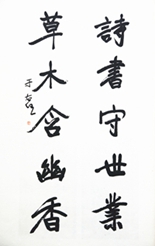 詩書守世業
草木含幽香